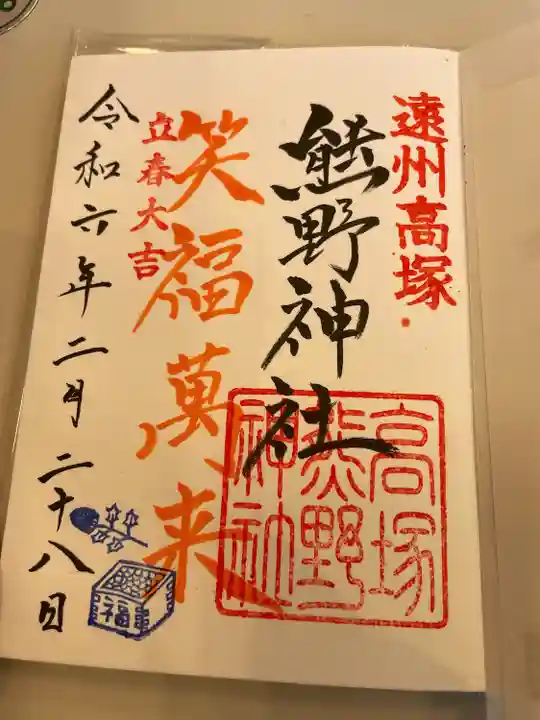 遠州高塚
熊野神社
高塚
熊野
神社
笑福萬来
立春大吉
福
令和六年二月二十八日